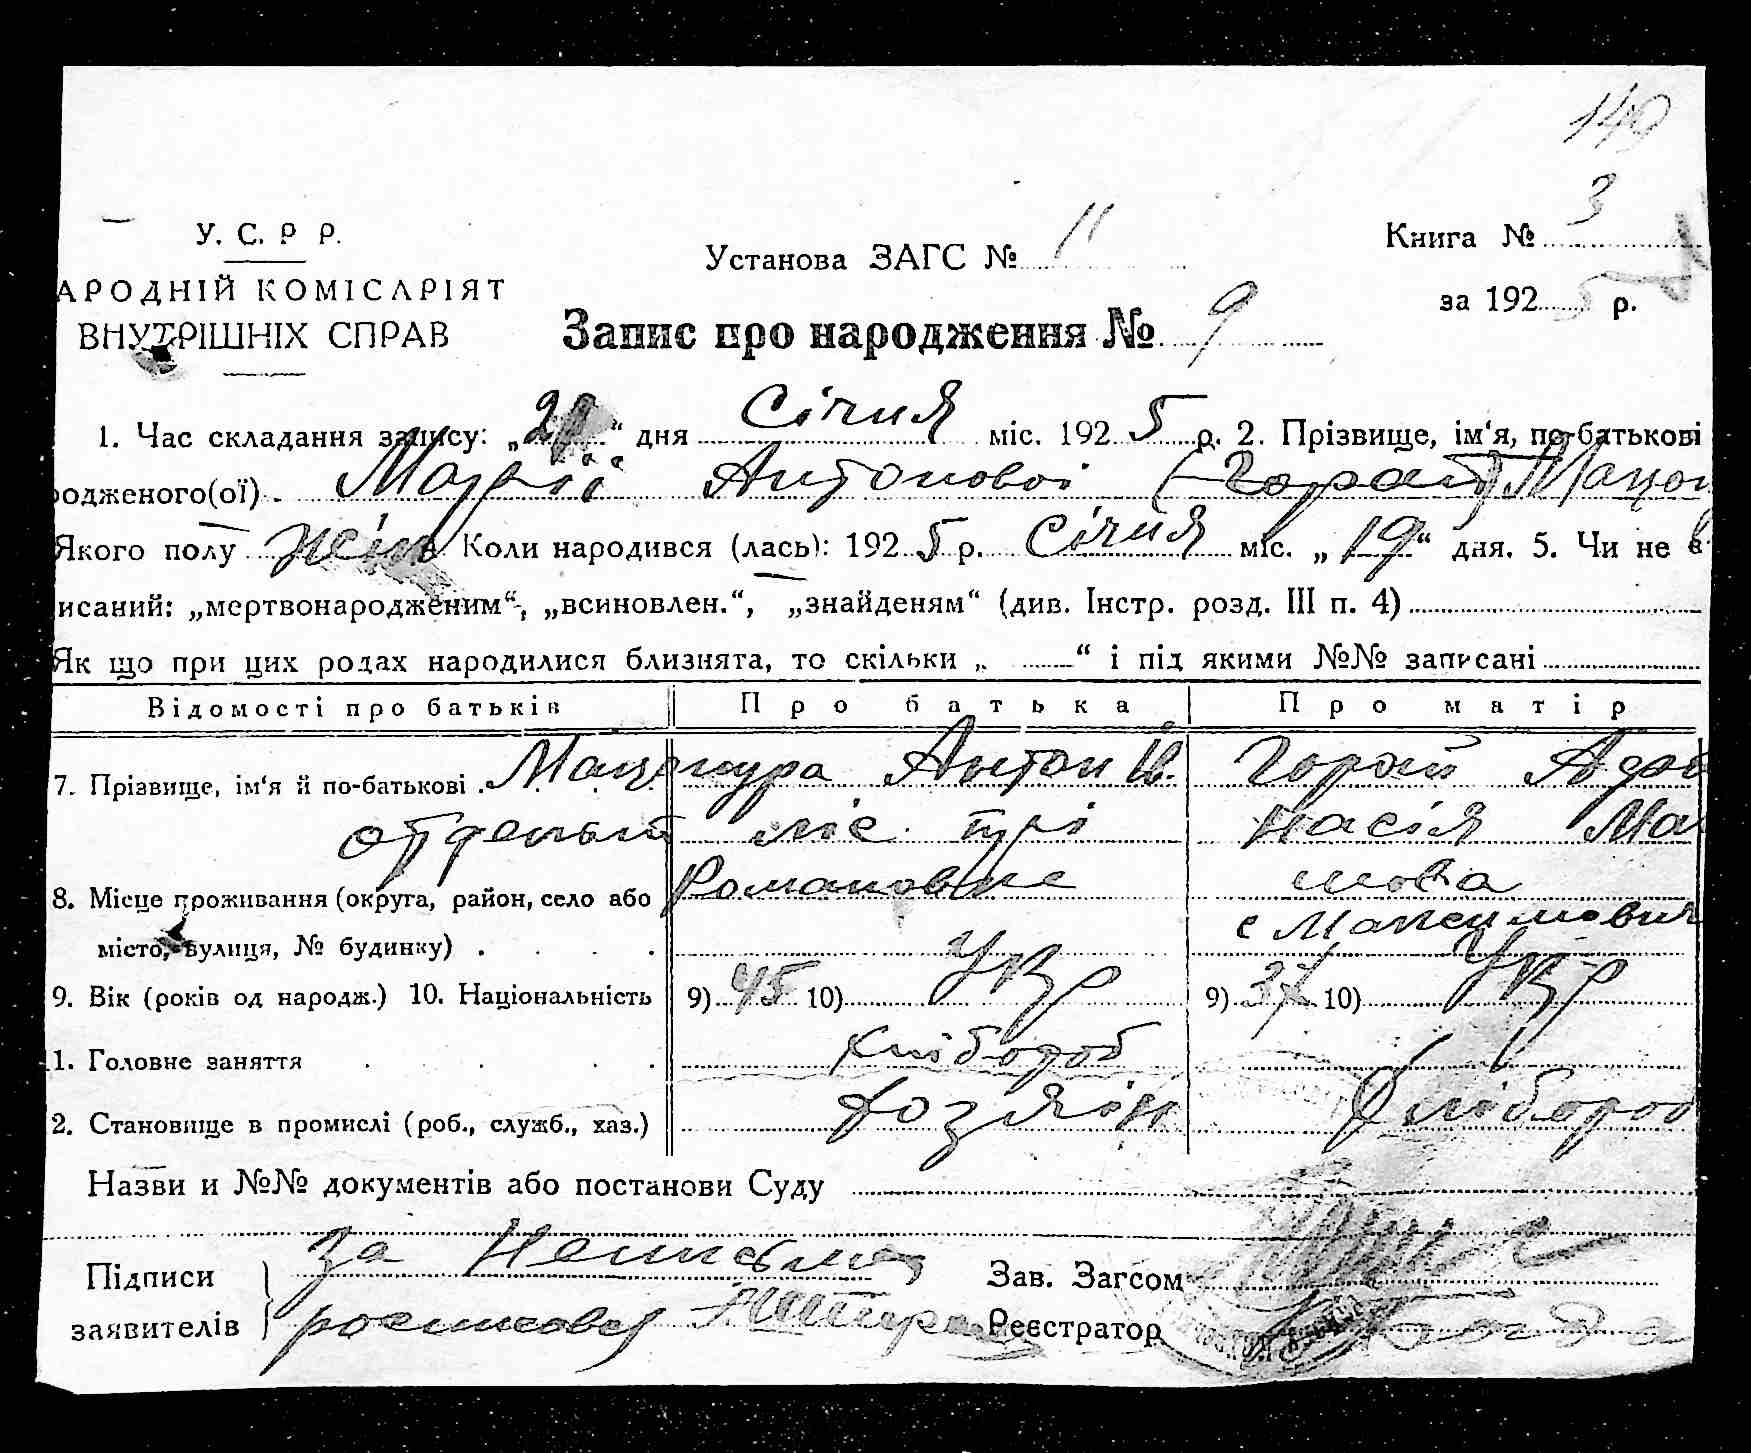 140
У. С. Р Р.
Установа ЗАГС № 11
Книга № 3
АРОДНІЙ КОМІСАРІЯТ
ВНУТРІШНІХ СПРАВ
за 192 5 р.
Запис про народження № 9
1. Час складання запису: „ “ дня Січня міс. 192 5 р. 2. Прізвище, ім‘я, по-батькові
одженого(ої) . Марії Антонової (Горай) Мацо
Якого полу жін Коли народився (лась): 192 5 р. Січня міс. „ 19 “ дня. 5. Чи не в
исаний: „мертвонародженим“, „всиновлен.“, „знайденям“ (див. Інстр. розд. III п. 4)
Як що при цих родах народилися близнята, то скільки „ “ і під якими №№ записані
Відомості про батьків Про батька Про матір
7. Прізвище, ім‘я й по-батькові . Мацокура Антон Ів. Горай
насія Ма
8. Місце проживання (округа, район, село або Романовке мова
місто, вулиця, № будинку) . . . . с Максимович
9. Вік (років од народж.) 10. Національність 9) 45 10) Укр 9) 37 10) Укр
1. Головне заняття . . . . хлібороб
2. Становище в промислі (роб., служб., хаз.) хозяїн хлібороб
Назви и №№ документів або постанови Суду
Підписи за Неписьмен
Зав. Загсом
заявителів росписовся
Реєстратор